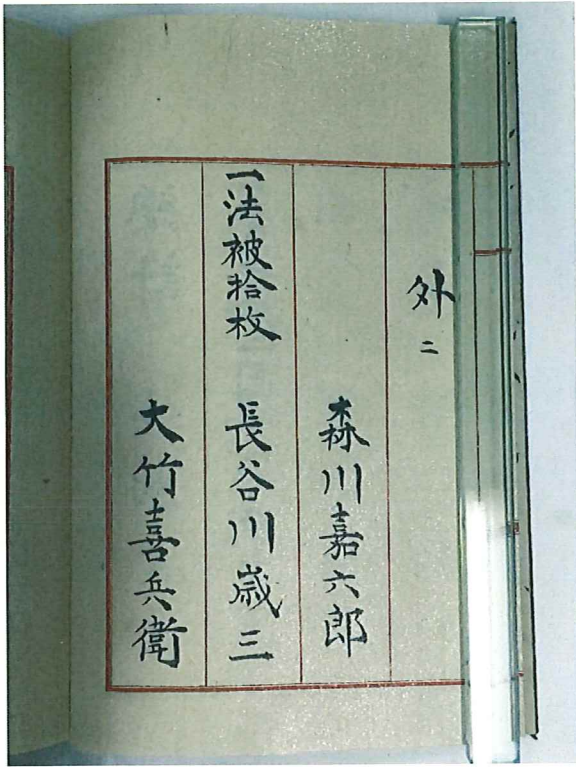 外ニ
森川嘉六郎
一法被拾枚 長谷川歳三
大竹喜兵衛